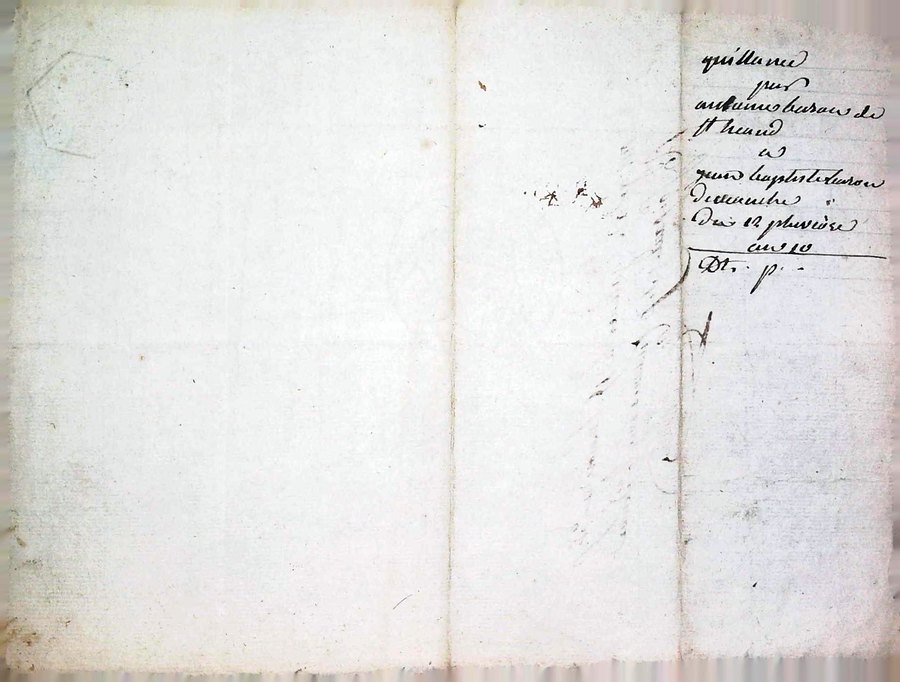 quittance
par
antoine barou de
st heand
a
jean baptiste barou
du 12 pluviose
an 10